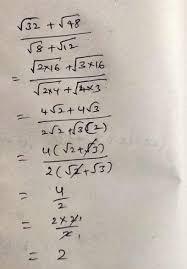 (√32 + √48) / (√8 + √12)
= (√2×16 + √3×16) / (√2×4 + √4×3)
= (4√2 + 4√3) / (2√2 + √3(2))
= 4(√2+√3) / 2(√2+√3)
= 4 / 2
= 2×2 / 2
= 2